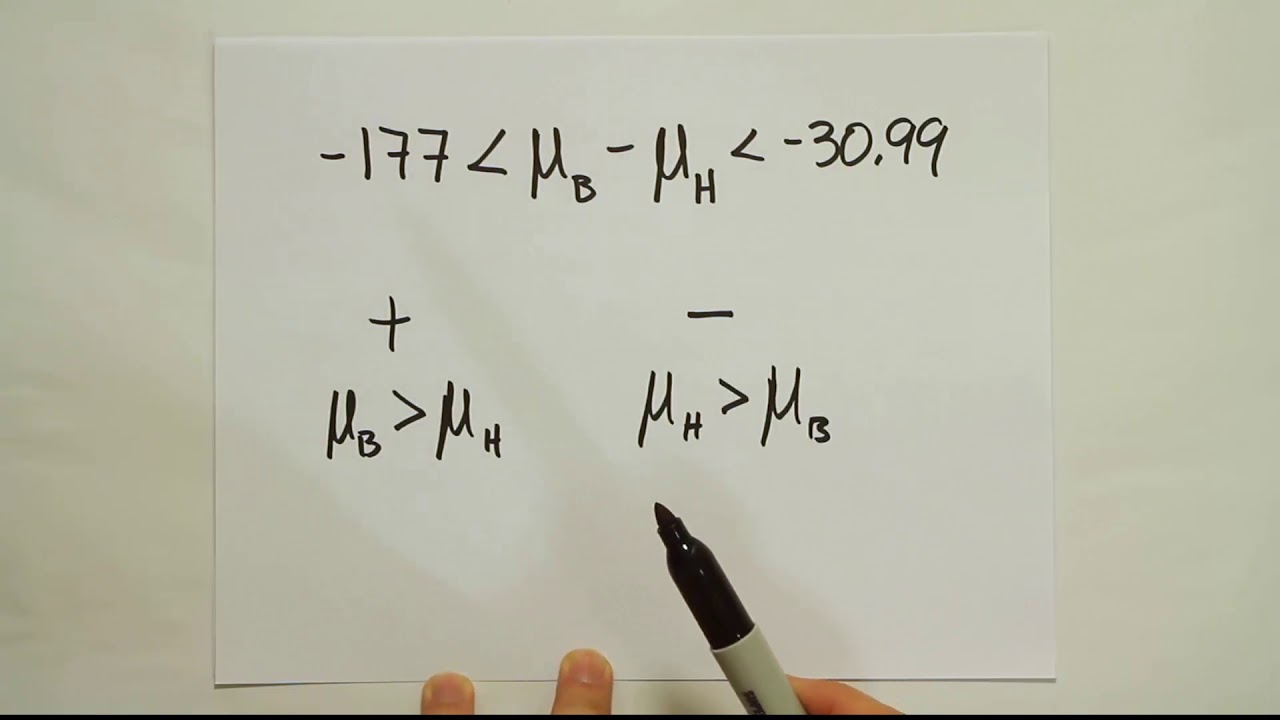 -177 < μB - μH < -30.99
+ −
μB > μH μH > μB